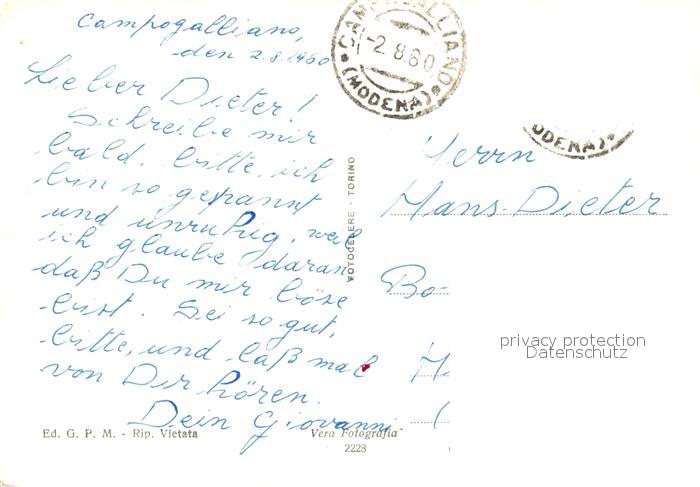 Campogalliano,
den 2.8.1960
Lieber Dieter!
Schreibe mir
bald, bitte, ich
bin so gespannt
und unruhig, weil
ich glaube daran
daß Du mir böse
bist. Sei so gut,
bitte, und laß mal
von Dir hören.
Dein Giovanni.
Ed. G. P. M. - Rip. Vietata
Vera Fotografia
2228
FOTOCELERE - TORINO
CAMPOGALLIANO
-2.8.60
(MODENA)
ODENA)
Herrn
Hans-Dieter
Bo-
H
privacy protection
Datenschutz